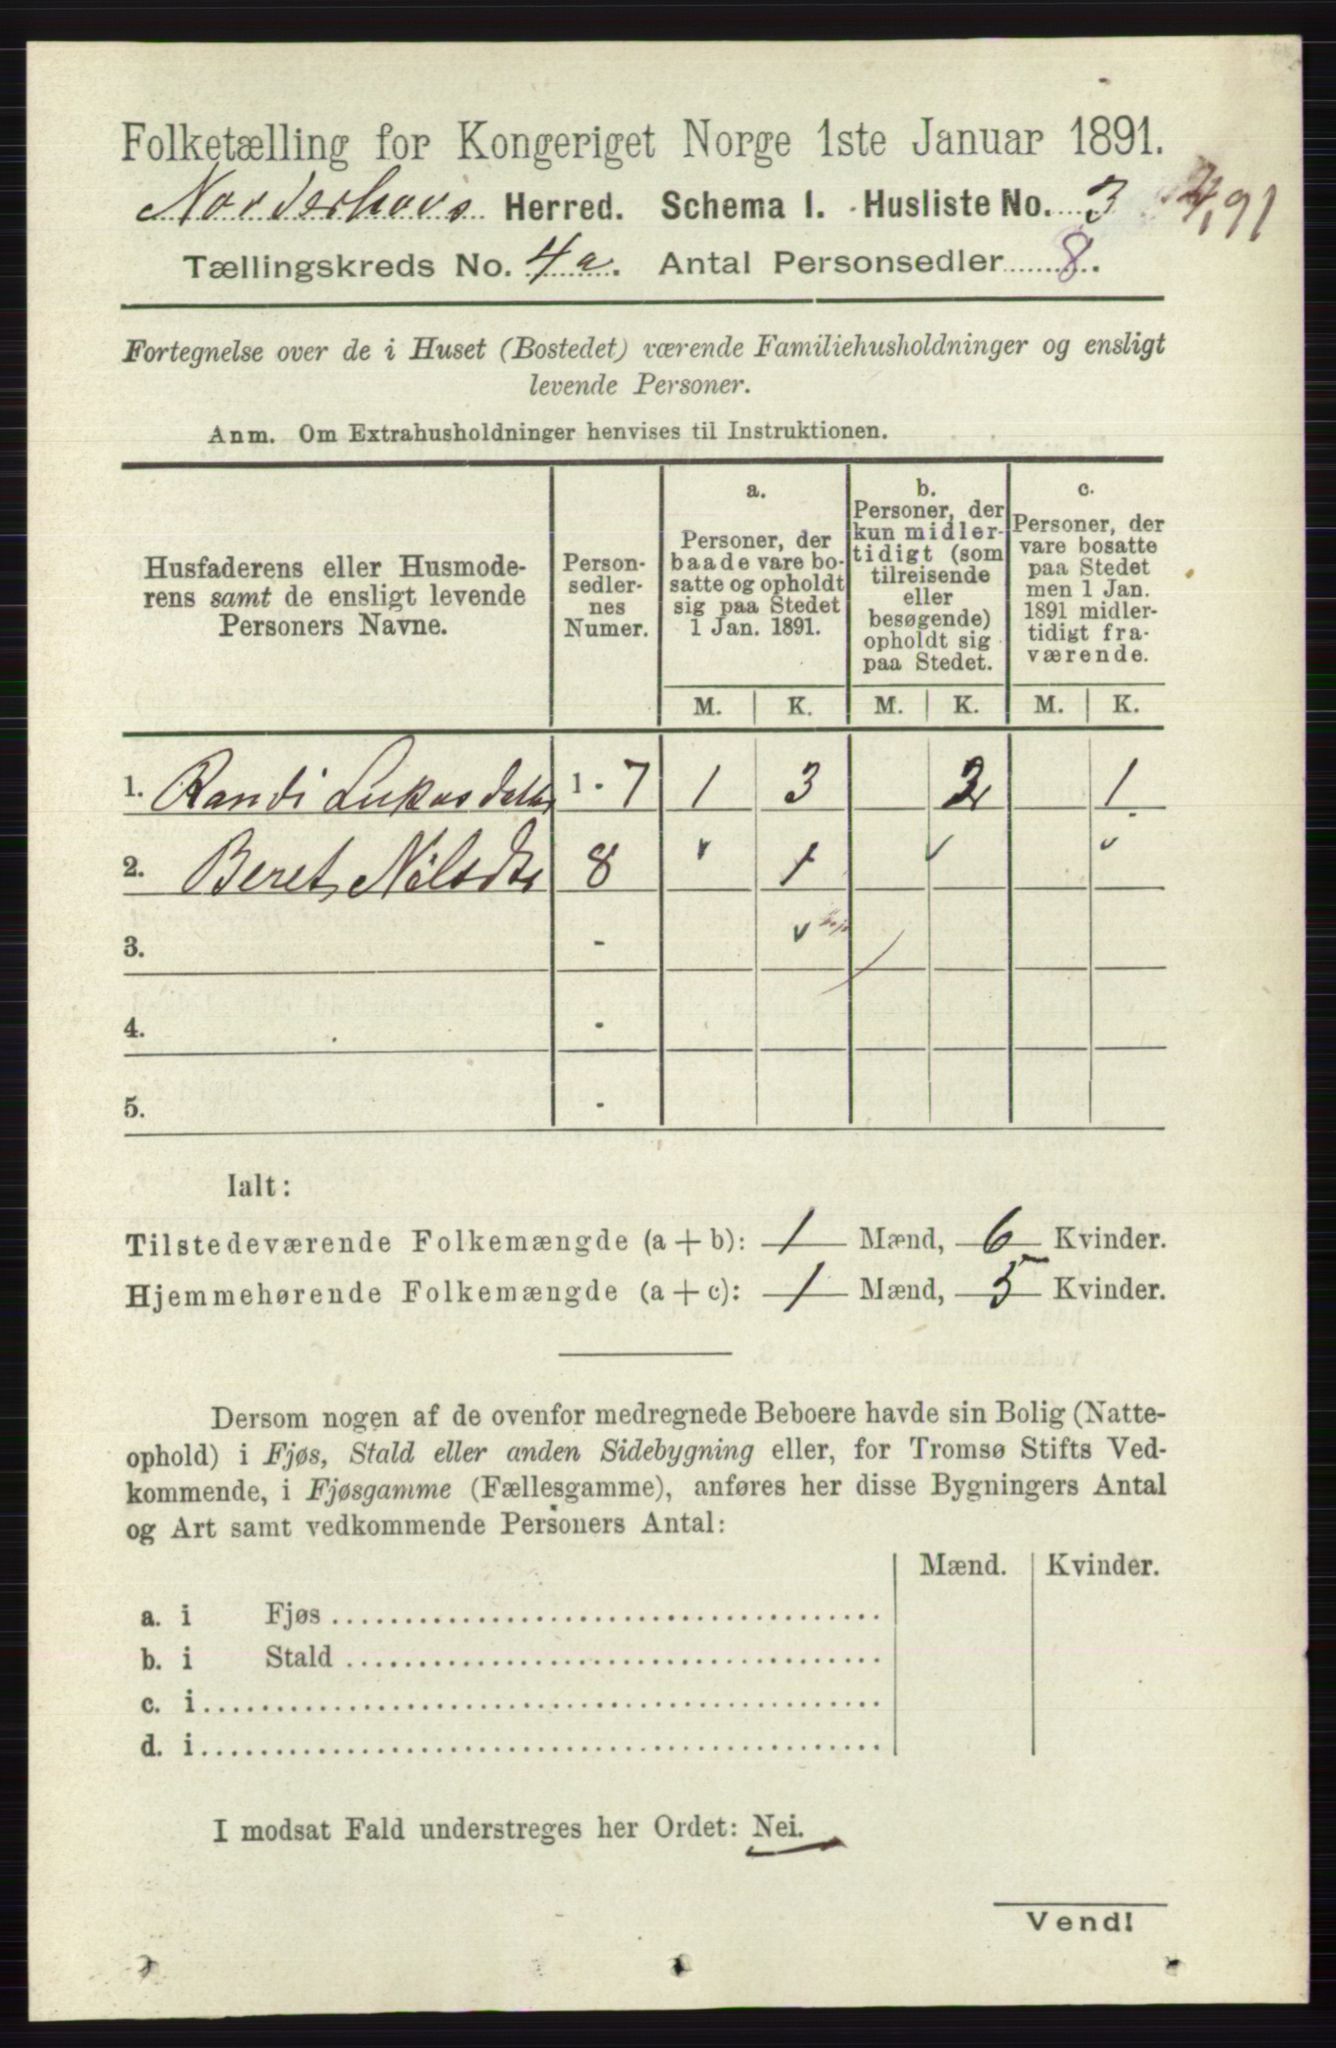 Folketælling for Kongeriget Norge 1ste Januar 1891.
Norderhovs Herred. Schema 1. Husliste No. 3
Tællingskreds No. 4a. Antal Personsedler 8.
Fortegnelse over de i Huset (Bostedet) værende Familiehusholdninger og ensligt
levende Personer.
Anm. Om Extrahusholdninger henvises til Instruktionen.
Husfaderens eller Husmode-
rens samt de ensligt levende
Personers Navne.
Person-
sedler-
nes
Numer.
a.
Personer, der
baade vare bo-
satte og opholdt
sig paa Stedet
1 Jan. 1891.
b.
Personer, der
kun midler-
tidigt (som
tilreisende
eller
besøgende)
opholdt sig
paa Stedet.
c.
Personer, der
vare bosatte
paa Stedet
men 1 Jan.
1891 midler-
tidigt fra-
værende.
M. K. M. K. M. K.
1. Randi Lukasdatter 1 - 7 1 3 2 1
2. Beret Nilsdtr 8 1
3. -
4. -
5. -
Ialt:
Tilstedeværende Folkemængde (a + b): 1 Mænd, 6 Kvinder.
Hjemmehørende Folkemængde (a + c): 1 Mænd, 5 Kvinder.
Dersom nogen af de ovenfor medregnede Beboere havde sin Bolig (Natte-
ophold) i Fjøs, Stald eller anden Sidebygning eller, for Tromsø Stifts Ved-
kommende, i Fjøsgamme (Fællesgamme), anføres her disse Bygningers Antal
og Art samt vedkommende Personers Antal:
Mænd. Kvinder.
a. i Fjøs
b. i Stald
c. i
d. i
I modsat Fald understreges her Ordet: Nei.
Vend!